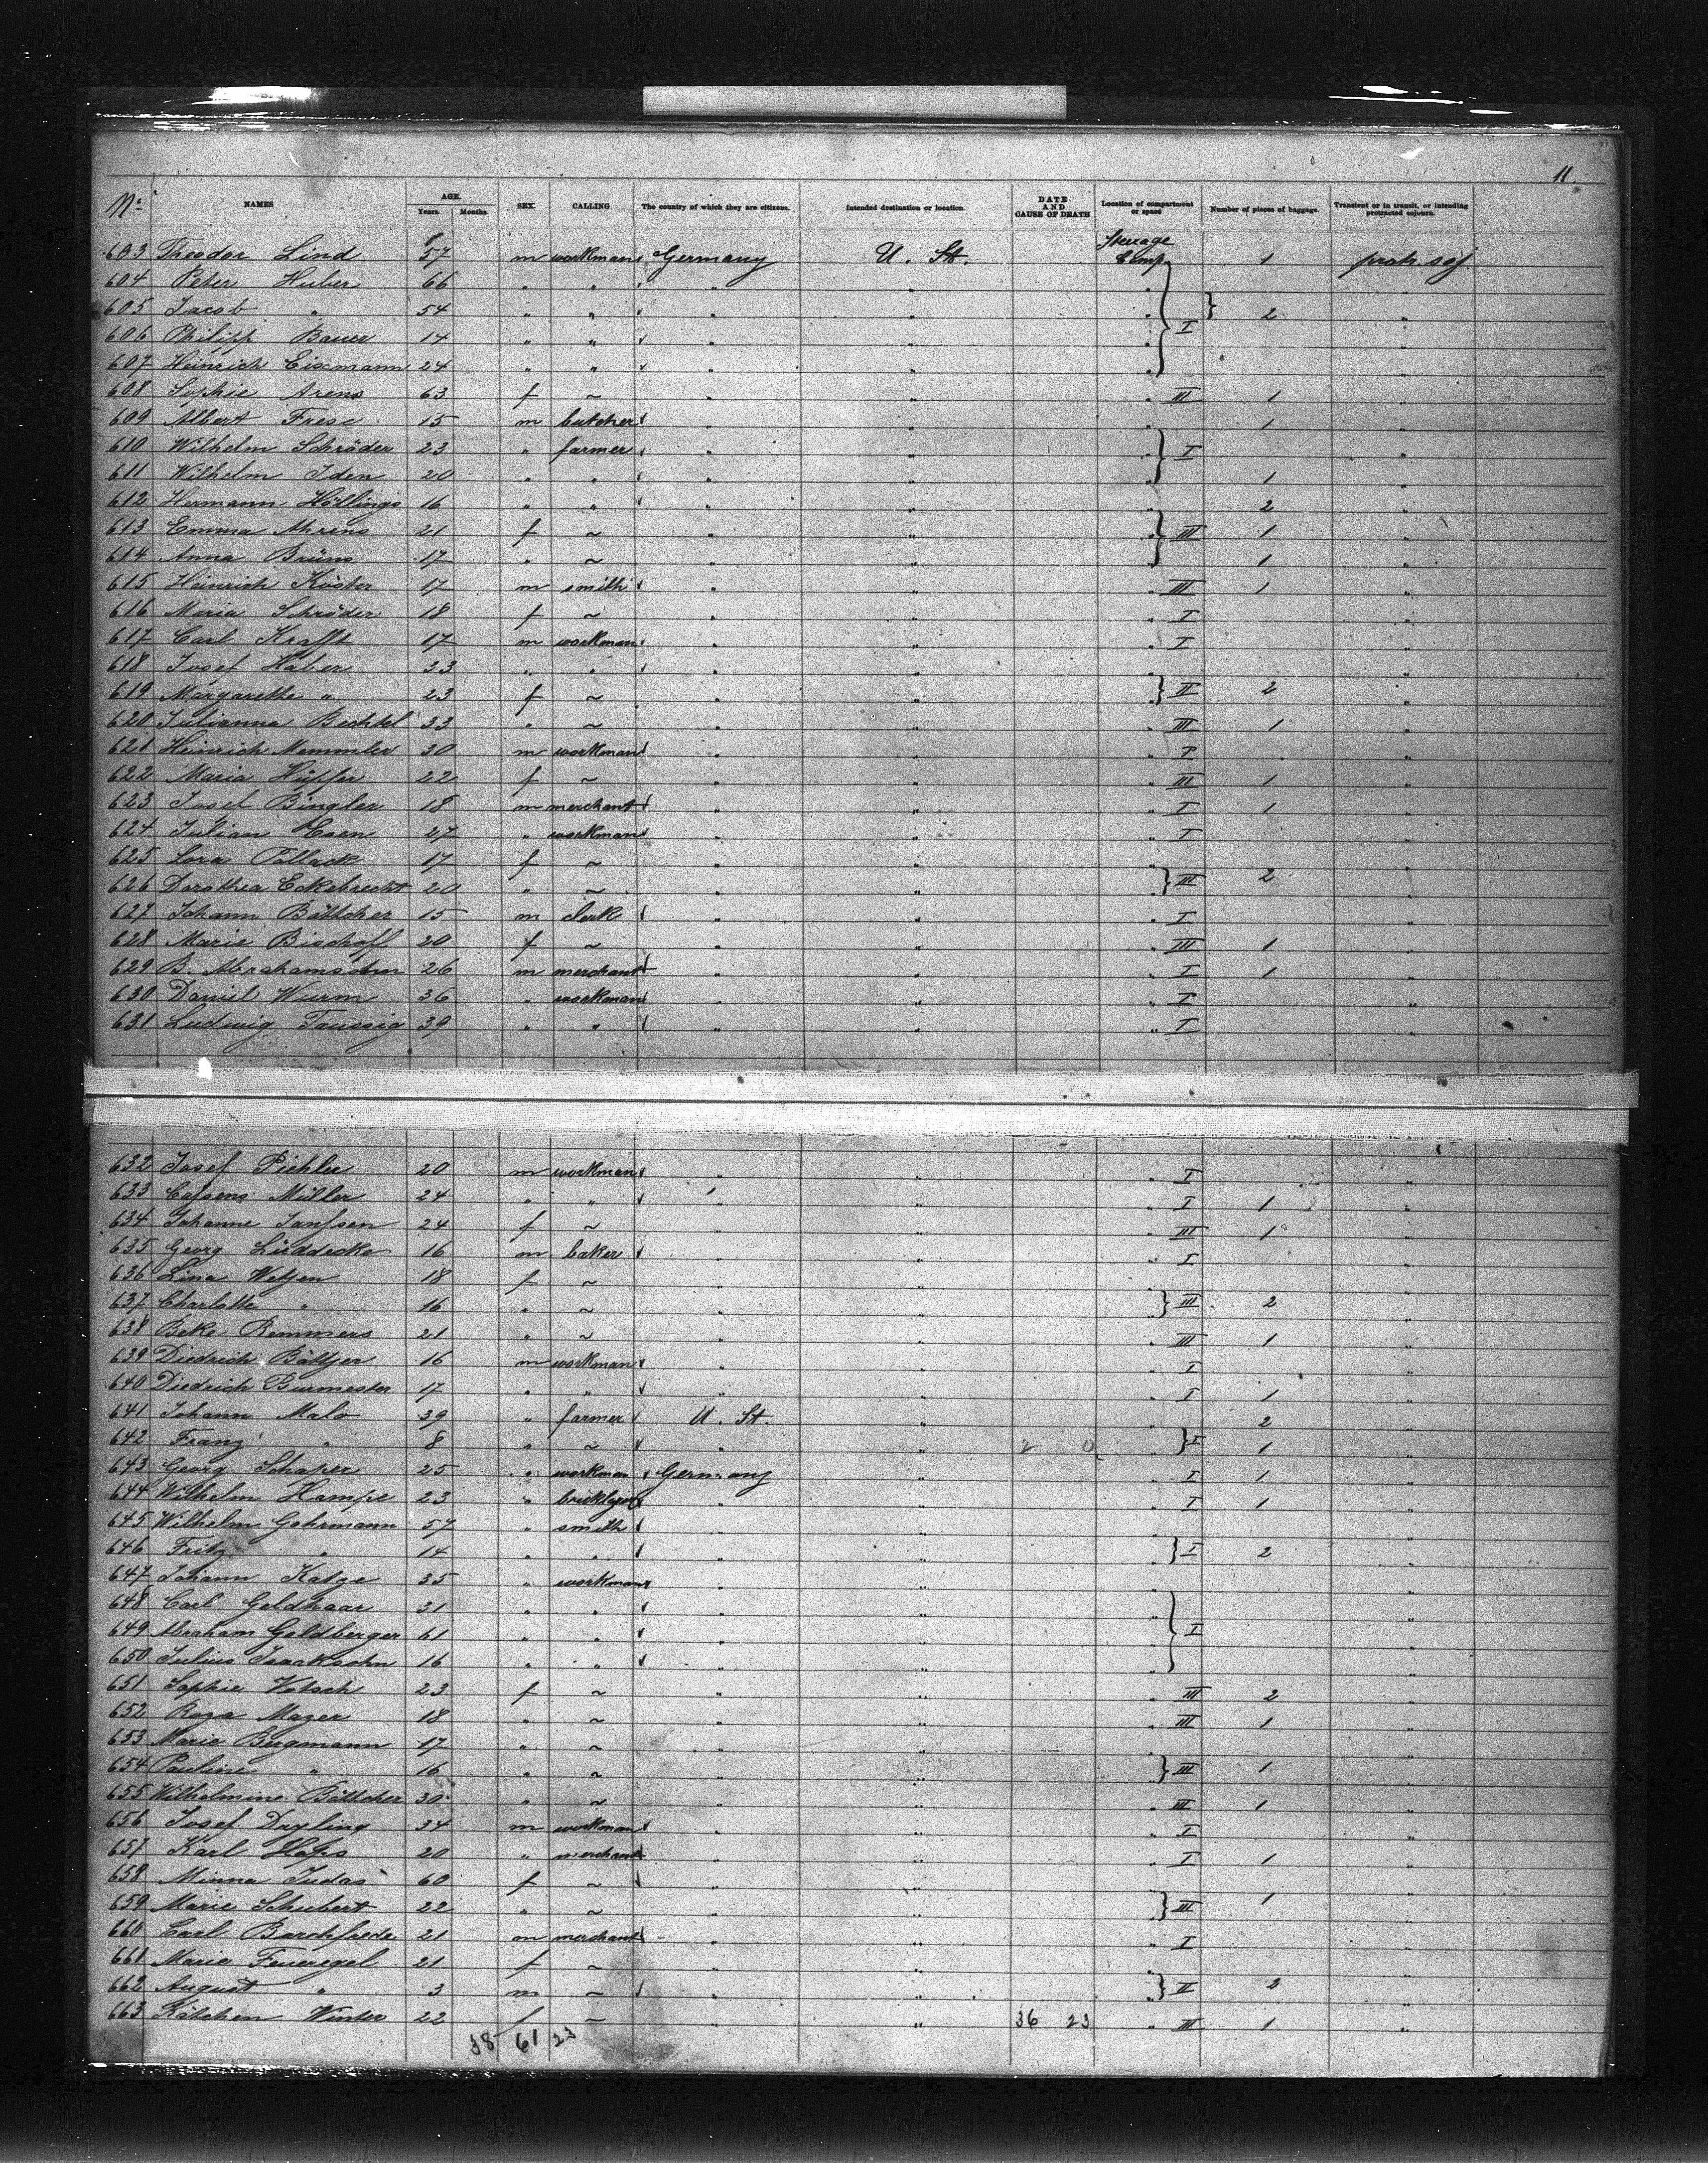 11
No NAMES AGE. Years. Months. SEX. CALLING The country of which they are citizens. Intended destination or location. DATE AND CAUSE OF DEATH Location of compartment or space Number of pieces of baggage. Transient or in transit, or intending protracted sojourn.
603 Theodor Lind 57 m workman Germany U. St. Steerage Comp. 1 protr. soj
604 Peter Huber 66 " " " " " "
605 Jacob " 54 " " " " " } I } 2 "
606 Philipp Bauer 14 " " " " " "
607 Heinrich Eixmann 24 " " " " " "
608 Sophie Arens 63 f ~ " " " III 1 "
609 Albert Frese 15 m butcher " " " 1 "
610 Wilhelm Schröder 23 " farmer " " " } I "
611 Wilhelm Iden 20 " " " " " 1 "
612 Hermann Höllings 16 " " " " " 2 "
613 Emma Ahrens 21 f ~ " " " } III 1 "
614 Anna Brüns 17 " ~ " " " 1 "
615 Heinrich Köster 17 m smith " " " III 1 "
616 Maria Schröder 18 f ~ " " " I "
617 Carl Krafft 17 m workman " " " I "
618 Josef Haber 33 " " " " " "
619 Margarethe " 23 f ~ " " " } II 2 "
620 Julianna Bechtel 33 " ~ " " " III 1 "
621 Heinrich Memmler 30 m workman " " " I "
622 Maria Hüpfer 22 f ~ " " " III 1 "
623 Josef Bingler 18 m merchant " " " I 1 "
624 Julian Esen 27 " workman " " " I "
625 Lora Pollack 17 f ~ " " " "
626 Dorothea Eckebrecht 20 " ~ " " " } III 2 "
627 Johann Böttcher 15 m clerk " " " I "
628 Marie Bischoff 20 f ~ " " " III 1 "
629 B. Abrahamsohn 26 m merchant " " " I 1 "
630 Daniel Wurm 36 " workman " " " I "
631 Ludwig Taussig 39 " " " " " I "
632 Josef Pichler 20 m workman " " " I "
633 Cassens Müller 24 " " " " " I 1 "
634 Johanne Janssen 24 f ~ " " " III 1 "
635 Georg Lüddecke 16 m baker " " " I "
636 Lina Wetjen 18 f ~ " " " "
637 Charlotte " 16 " ~ " " " } III 2 "
638 Beke Remmers 21 " ~ " " " III 1 "
639 Diedrich Böttjer 16 m workman " " " I "
640 Diedrich Burmester 17 " " " " " I 1 "
641 Johann Malo 39 " farmer U. St. " " 2 "
642 Franz " 8 " ~ " " 2 0 } I 1 "
643 Georg Schaper 25 " workman Germany " " I 1 "
644 Wilhelm Hampe 23 " bricklayer " " " I 1 "
645 Wilhelm Gohrmann 57 " smith " " " "
646 Fritz " 14 " " " " " } I 2 "
647 Johann Katze 35 " workman " " " "
648 Carl Geldhaar 31 " " " " " "
649 Abraham Goldberger 61 " " " " " } I "
650 Julius Isacksohn 16 " " " " " "
651 Sophie Votsch 23 f ~ " " " III 2 "
652 Rosa Mazer 18 " ~ " " " III 1 "
653 Marie Bergmann 17 " ~ " " " "
654 Pauline " 16 " ~ " " " } III 1 "
655 Wilhelmine Böttcher 30 " ~ " " " III 1 "
656 Josef Dayling 34 m workman " " " I "
657 Karl Hops 20 " merchant " " " I 1 "
658 Minna Judas 60 f ~ " " " "
659 Marie Schubert 22 " ~ " " " } III 1 "
660 Carl Barchfrede 21 m merchant " " " I "
661 Maria Feueregel 21 f ~ " " " "
662 August " 3 m ~ " " " } II 2 "
663 Kätchen Winter 22 f ~ " " 36 23 " III 1 "
38 61 23